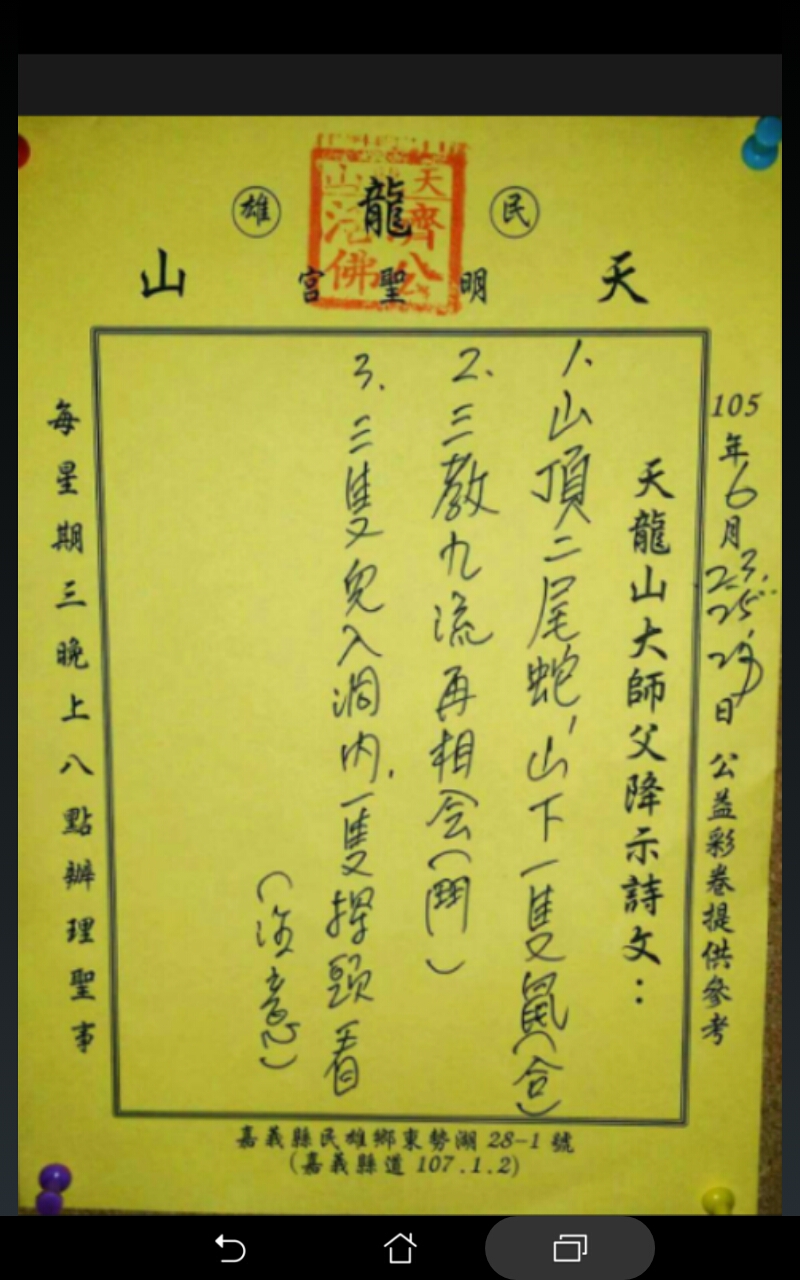 民
雄
天龍山
明聖宮
天龍山
濟公
活佛
105年6月23.25.27日 公益彩卷提供參考
天龍山大師父降示詩文：
1.山頂二尾蛇，山下一隻鼠(合)
2.三教九流再相会(鬥)
3.三隻兔入洞內，一隻探頭看
(注意)
每星期三晚上八點辦理聖事
嘉義縣民雄鄉東勢湖 28-1 號
(嘉義縣道 107.1.2)